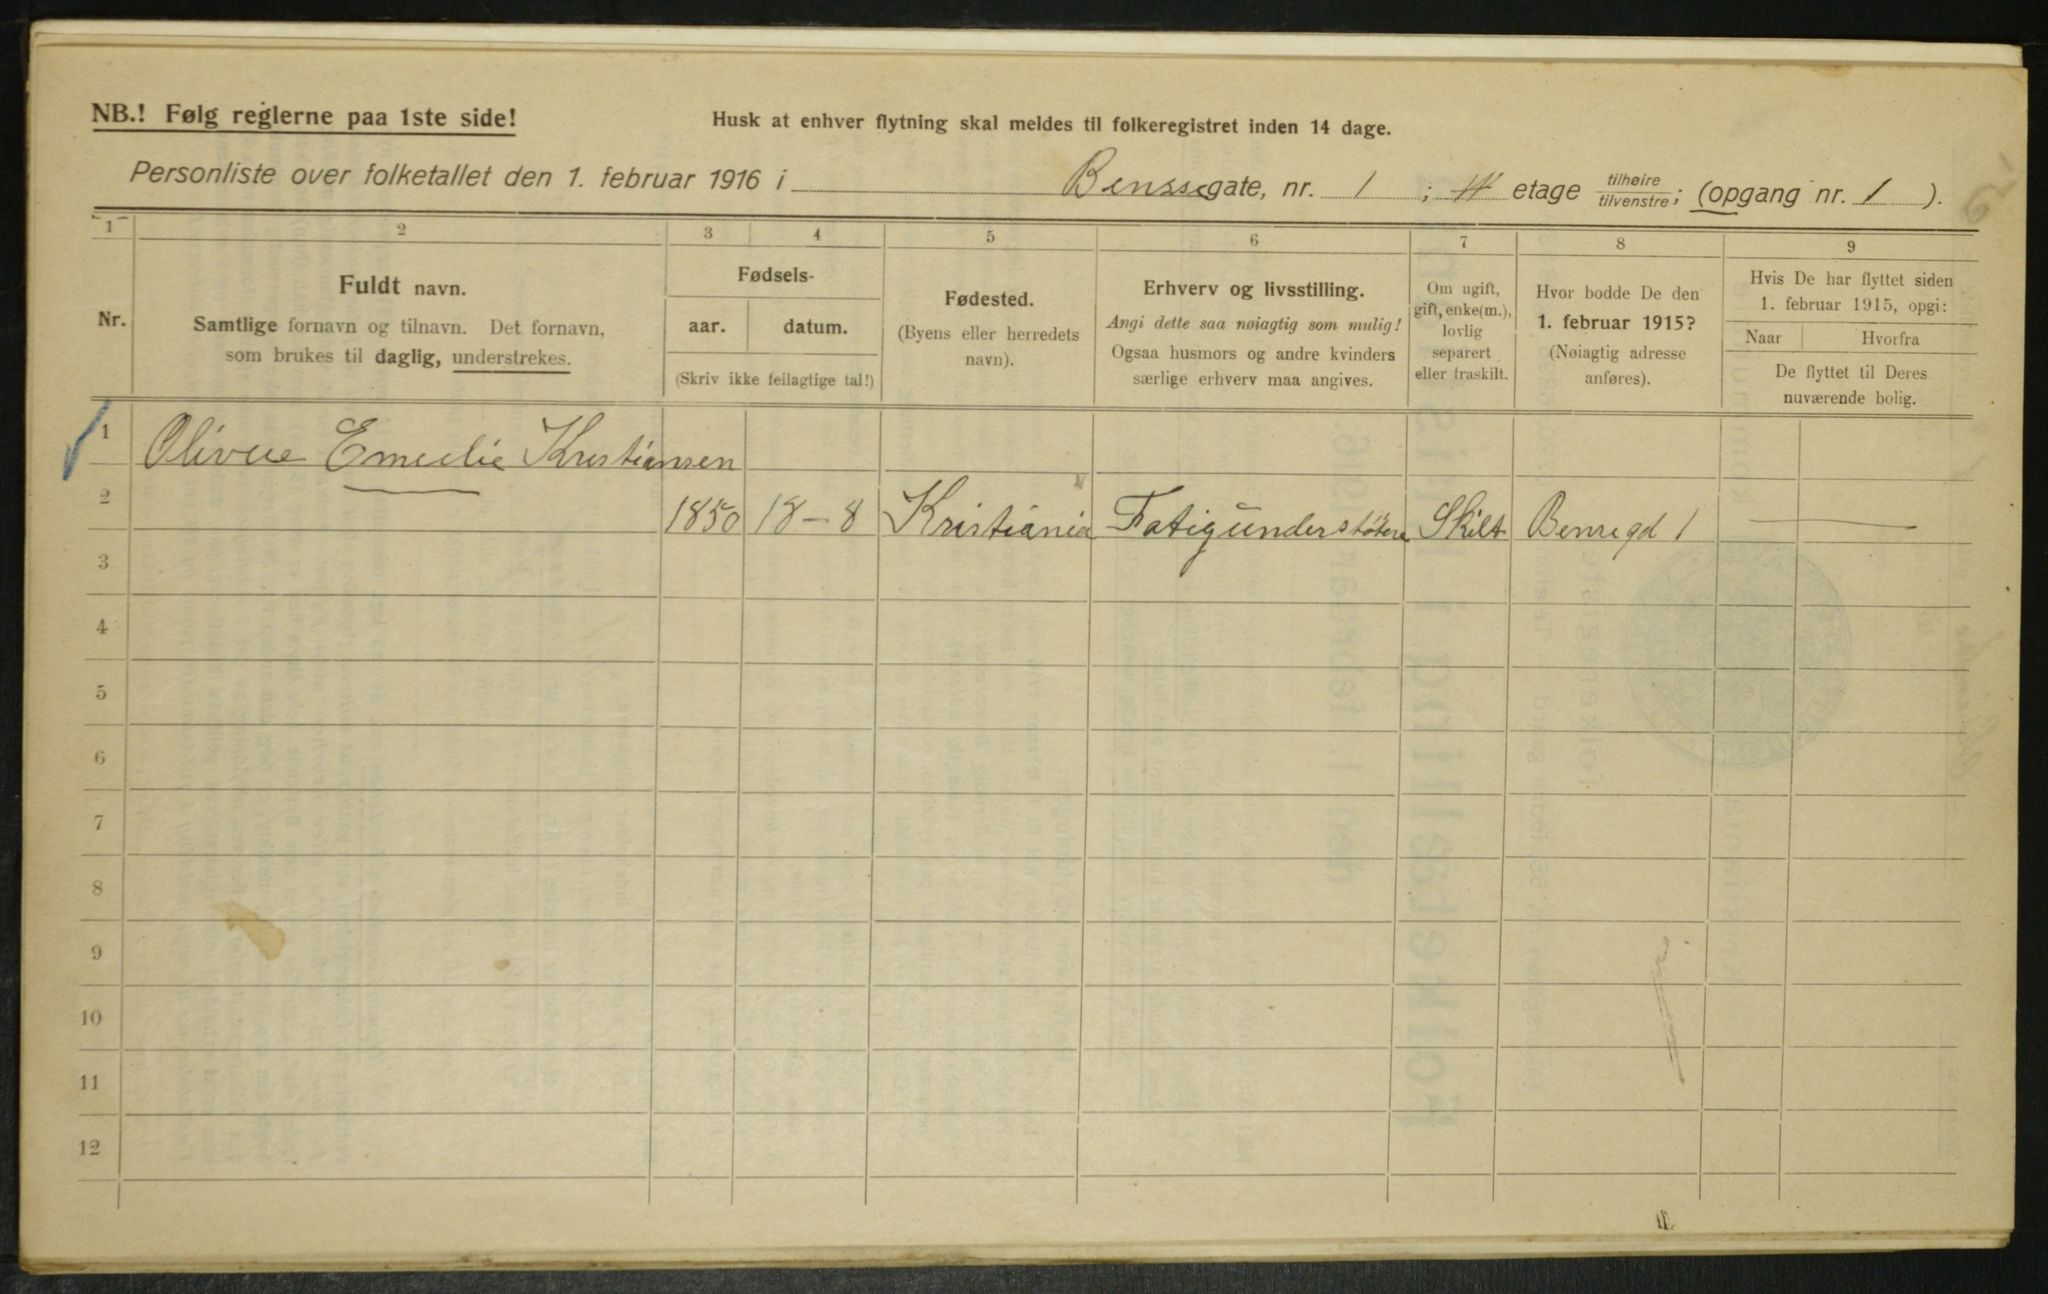 NB.! Følg reglerne paa 1ste side!
Husk at enhver flytning skal meldes til folkeregistret inden 14 dage.
Personliste over folketallet den 1. februar 1916 i Bensegate, nr. 1 ; etage tilhøire tilvenstre ; (opgang nr. 1 ).
1 2 3 4 5 6 7 8 9
Nr.
Fuldt navn.
Samtlige fornavn og tilnavn. Det fornavn,
som brukes til daglig, understrekes.
Fødsels-
aar. datum.
(Skriv ikke feilagtige tal!)
Fødested.
(Byens eller herredets
navn).
Erhverv og livsstilling.
Angi dette saa nøiagtig som mulig!
Ogsaa husmors og andre kvinders
særlige erhverv maa angives.
Om ugift,
gift, enke(m.),
lovlig
separert
eller fraskilt.
Hvor bodde De den
1. februar 1915?
(Nøiagtig adresse
anføres).
Hvis De har flyttet siden
1. februar 1915, opgi:
Naar Hvorfra
De flyttet til Deres
nuværende bolig.
1 Olivue Emelie Kristiansen
2 1850 18-8 Kristiania Fatigunderstøtere Skilt Bensegd 1
3
4
5
6
7
8
9
10
11
12